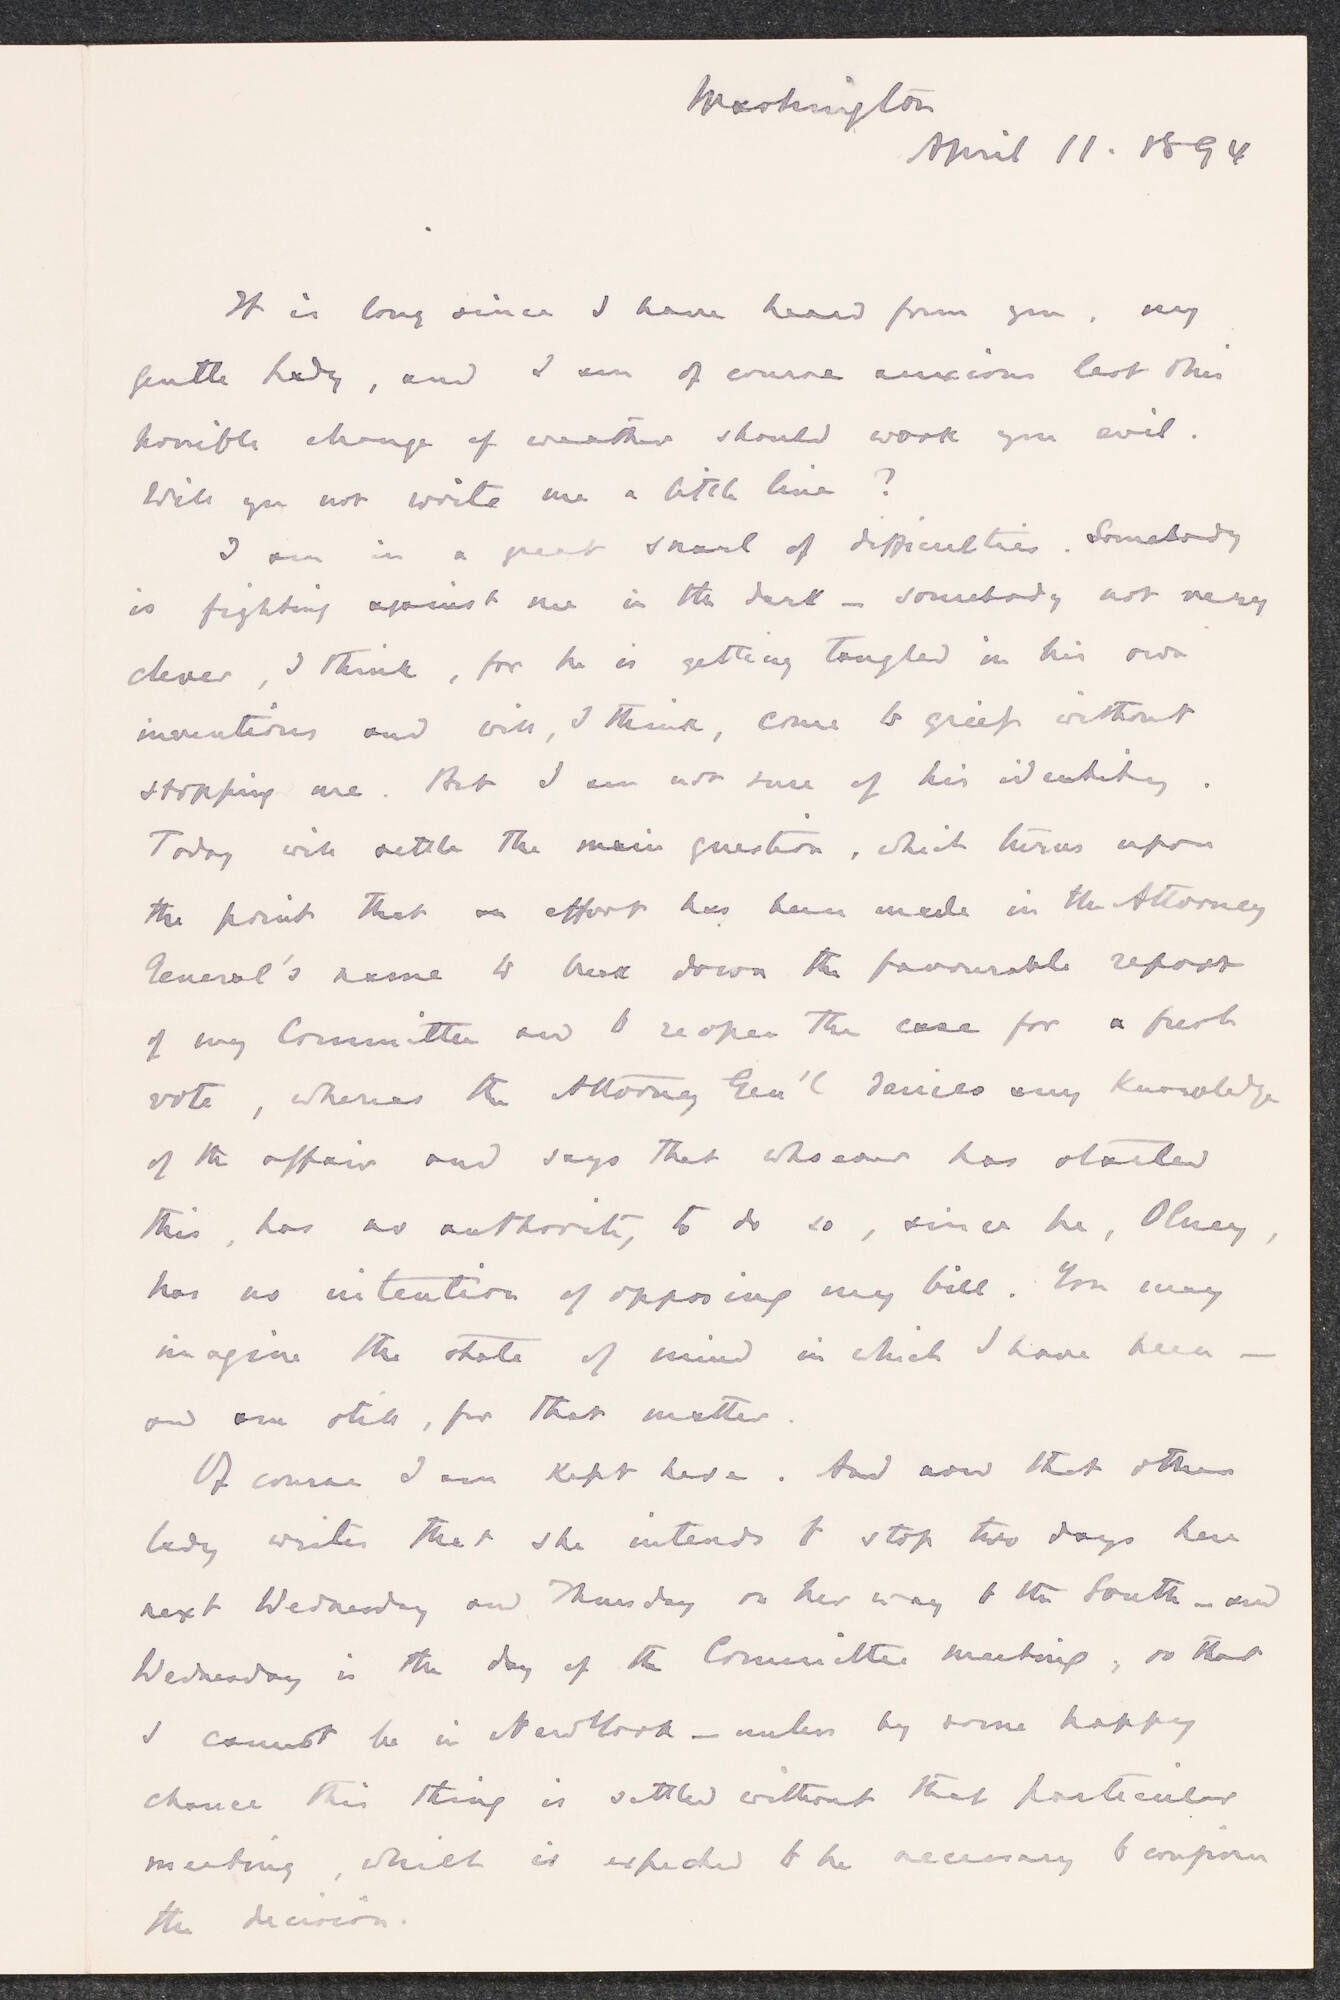 Washington
April 11. 1894
It is long since I have heard from you, my
gentle lady, and I am of course anxious lest this
horrible change of weather should work you evil.
Will you not write me a little line?
I am in a great snarl of difficulties. Somebody
is fighting against me in the dark – somebody not very
clever, I think, for he is getting tangled in his own
inventions and will, I think, come to grief without
stopping me. But I am not sure of his identity.
Today will settle the main question, which turns upon
the point that an effort has been made in the Attorney
General's name to break down the favourable report
of my Committee and to reopen the case for a fresh
vote, whereas the Attorney Gen'l denies any knowledge
of the affair and says that whoever has started
this, has no authority to do so, since he, Olney,
has no intention of opposing my bill. You may
imagine the state of mind in which I have been –
and am still, for that matter.
Of course I am kept here. And now that other
lady writes that she intends to stop two days here
next Wednesday and Thursday on her way to the South – and
Wednesday is the day of the Committee meeting, so that
I cannot be in New York – unless by some happy
chance this thing is settled without that particular
meeting, which is expected to be necessary to confirm
the decision.